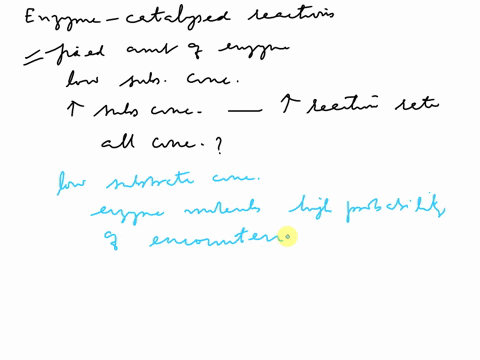 Enzyme - catalysed reactions
= fixed amt of enzyme
low subs. conc.
↑ subs conc. — ↑ reaction rate
all conc. ?
low substrate conc.
enzyme molecules high probability
of encounter